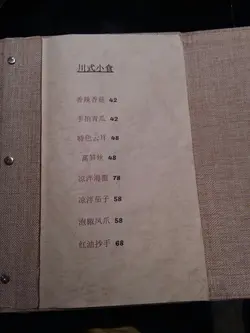 川式小食
香辣香菇 42
手拍青瓜 42
特色云耳 48
48
凉拌海蜇 78
凉拌茄子 58
泡椒凤爪 58
红油抄手 68